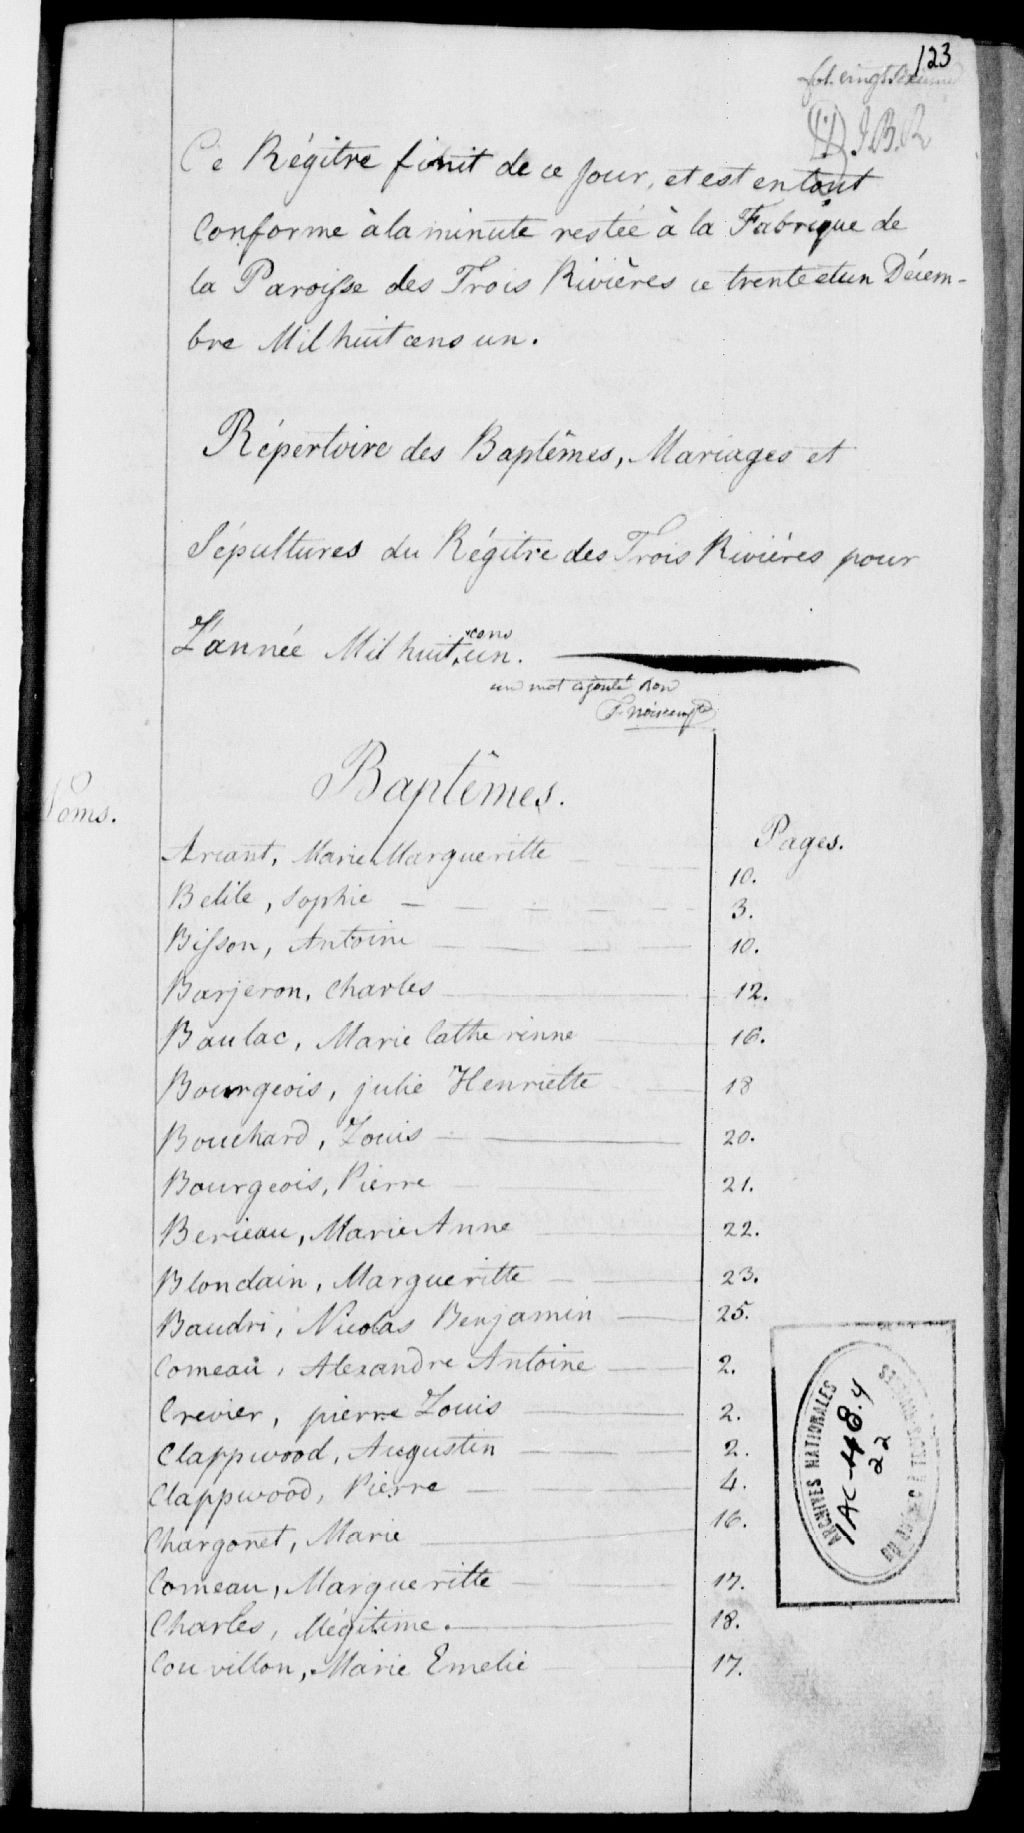 123
Ce Régitre finit de ce Jour, et est en tout
Conforme à la minute restée à la Fabrique de
la Paroisse des Trois Rivières ce trente et un Décem-
bre Mil huit cens un.
Répertoire des Baptêmes, Mariages et
Sépultures du Régitre des Trois Rivières pour
L'année Mil huit cens un.
un mot ajouté Bon
Baptêmes.
Noms.
Pages.
Arcant, Marie Margueritte 10.
Belile, Sophie 3.
Bisson, Antoine 10.
Barjeron, Charles 12.
Baulac, Marie Catherinne 16.
Bourgeois, julie Henriette 18
Bouchard, Louis 20.
Bourgeois, Pierre 21.
Berieau, Marie Anne 22.
Blondain, Margueritte 23.
Baudri, Nicolas Benjamin 25.
Comeau, Alexandre Antoine 2.
Crevier, pierre Louis 2.
Clappwood, Augustin 2.
Clappwood, Pierre 4.
Chargonet, Marie 16.
Comeau, Margueritte 17.
Charles, Illégitime. 18.
Couvillon, Marie Emelie 17.
ARCHIVES NATIONALES
1AC-48.4
22
DU QUÉBEC À TROIS-RIVIÈRES